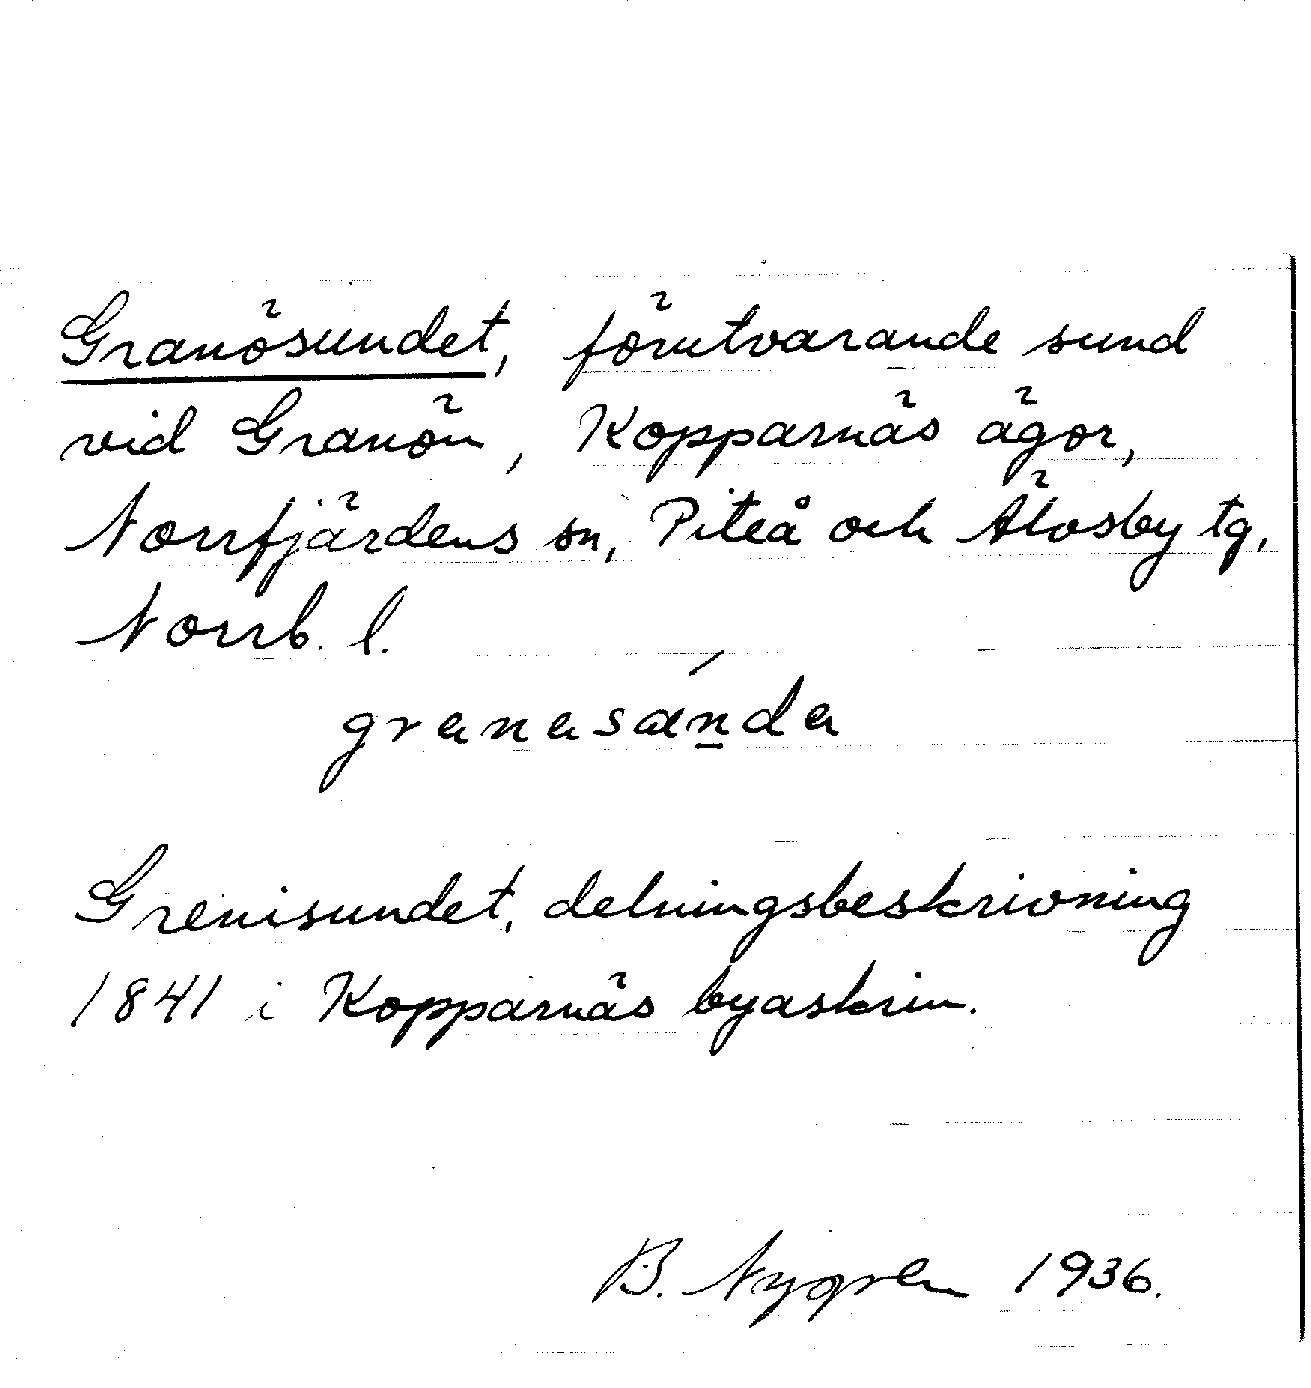 Granösundet, förutvarande sund
vid Granön, Kopparnäs ägor,
Norrfjärdens sn, Piteå och Älvsby tg,
Norrb. l.
granasǽnda
Grenisundet, delningsbeskrivning
1841 i Kopparnäs byaskrin.
B. Nygren 1936.